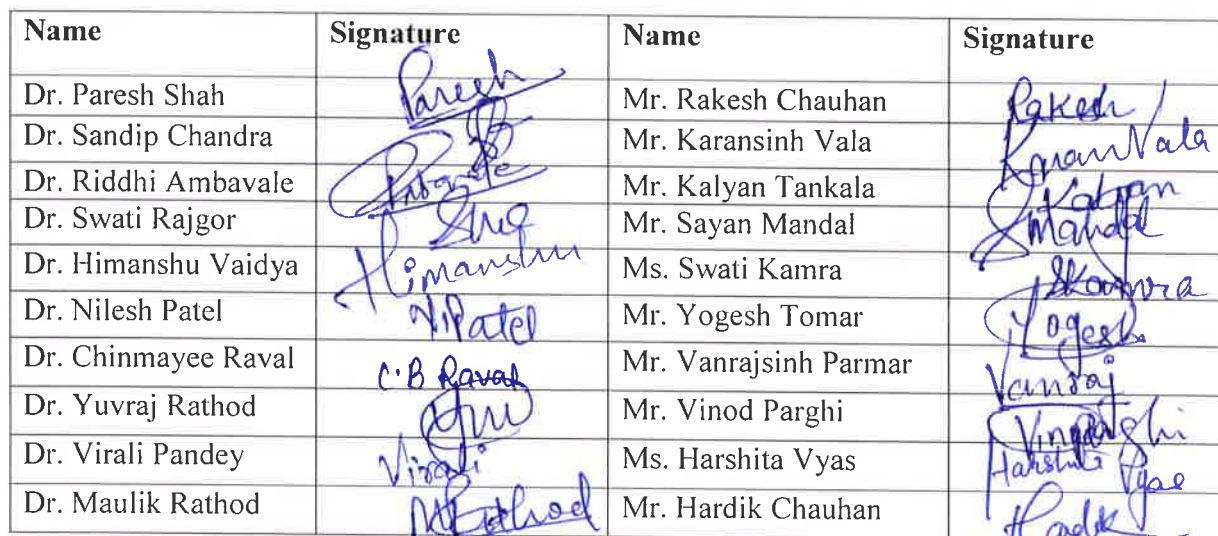 Name Signature Name Signature
Dr. Paresh Shah Paresh Mr. Rakesh Chauhan Rakesh
Dr. Sandip Chandra Mr. Karansinh Vala Karan Vala
Dr. Riddhi Ambavale Mr. Kalyan Tankala Kalyan
Dr. Swati Rajgor Mr. Sayan Mandal SMandal
Dr. Himanshu Vaidya Himanshu Ms. Swati Kamra SKamra
Dr. Nilesh Patel N.Patel Mr. Yogesh Tomar Yogesh
Dr. Chinmayee Raval C.B Raval Mr. Vanrajsinh Parmar Vanraj
Dr. Yuvraj Rathod Mr. Vinod Parghi
Dr. Virali Pandey Virali Ms. Harshita Vyas Harshita Vyas
Dr. Maulik Rathod MRathod Mr. Hardik Chauhan Hardik